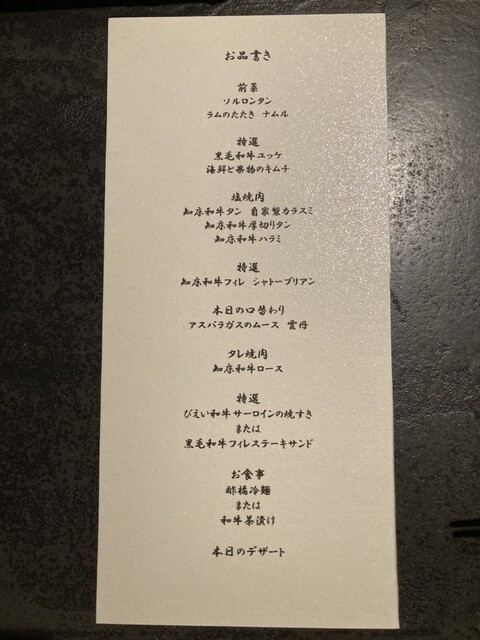 お品書き
前菜
ソルロンタン
ラムのたたき ナムル
特選
黒毛和牛ユッケ
海鮮と果物のキムチ
塩焼肉
知床和牛タン 自家製カラスミ
知床和牛厚切りタン
知床和牛ハラミ
特選
知床和牛フィレ シャトーブリアン
本日の口替わり
アスパラガスのムース 雲丹
タレ焼肉
知床和牛ロース
特選
びえい和牛サーロインの焼すき
または
黒毛和牛フィレステーキサンド
お食事
酢橘冷麺
または
和牛茶漬け
本日のデザート